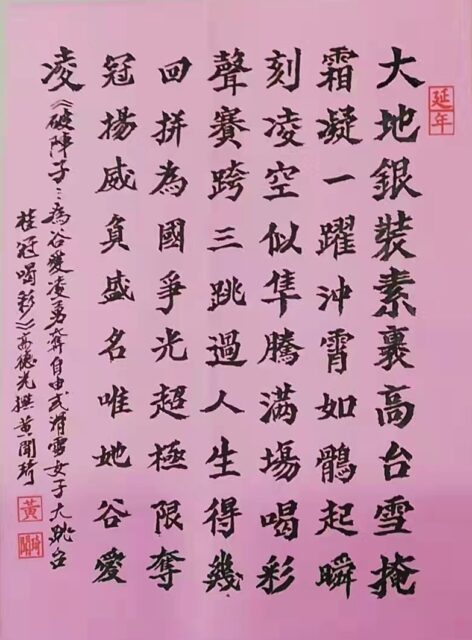 延年
大地銀裝素裹高台雪掩
霜凝一躍沖霄如鶻起瞬
刻凌空似隼騰满場喝彩
聲賽跨三跳過人生得幾
回拼為國爭光超極限奪
冠揚威負盛名唯她谷愛
凌《破陣子：為谷愛凌勇奪自由式滑雪女子大跳台
桂冠喝彩》高德光撰黄
黃